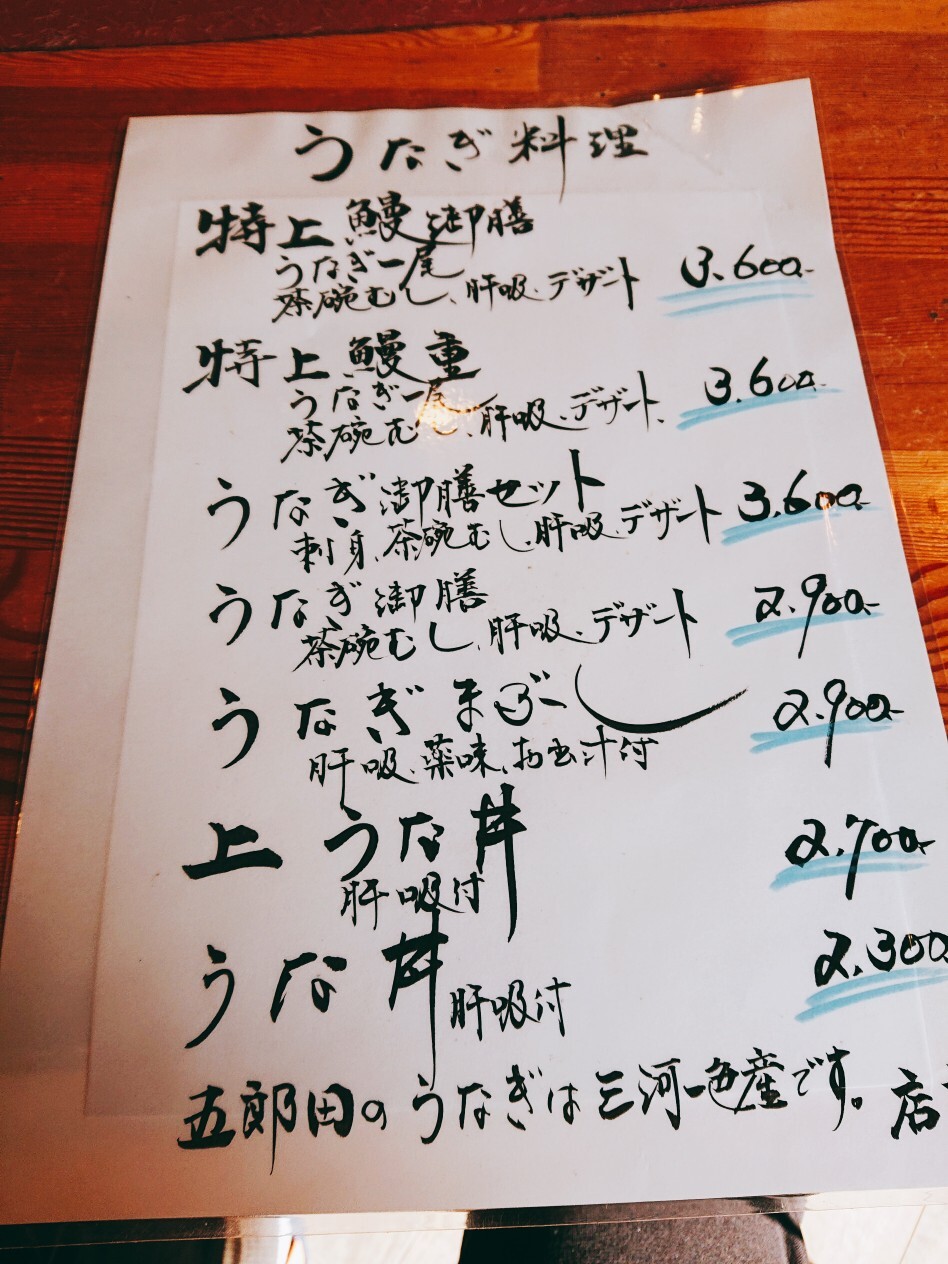 うなぎ料理
特上鰻御膳
うなぎ一尾
茶碗むし、肝吸、デザート 3.600-
特上鰻重
うなぎ一尾
茶碗むし、肝吸、デザート、 3.600-
うなぎ御膳セット
刺身、茶碗むし、肝吸、デザート 3.600-
うなぎ御膳
茶碗むし、肝吸、デザート 2.900-
うなぎまぶし 2.900-
肝吸、薬味、お出汁付
上うな丼 2.700-
肝吸付
うな丼 肝吸付 2.300
五郎田のうなぎは三河一色産です。店